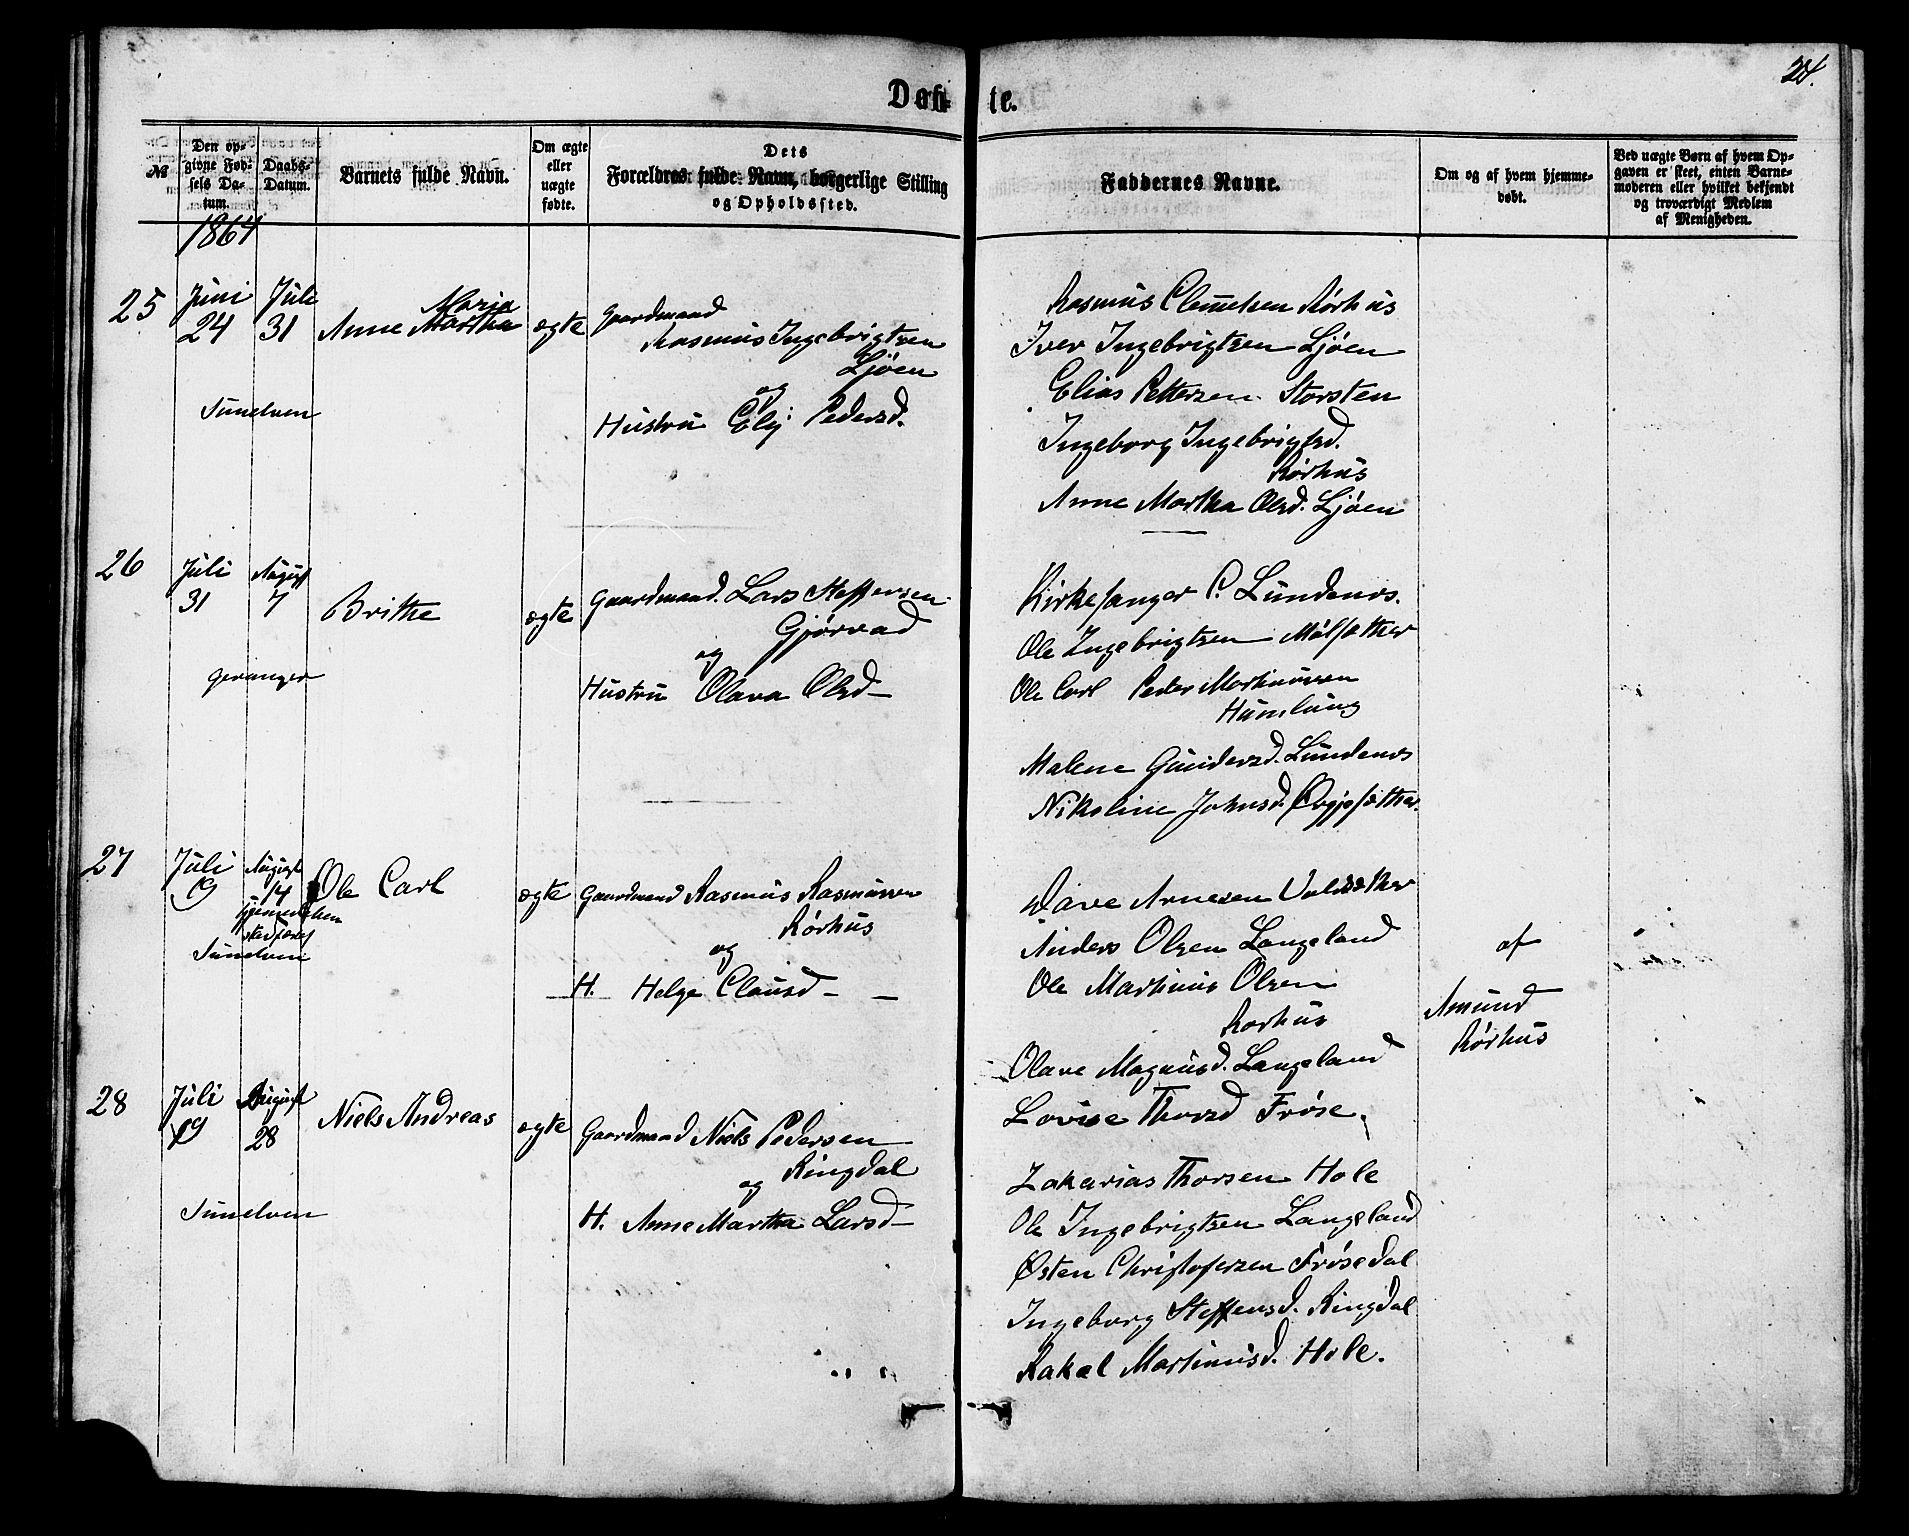 24.
Døb- te.
№
Den op-
givne Fød-
sels Da-
tum.
Daabs-
Datum.
Barnets fulde Navn.
Om ægte
eller
uægte
fødte.
Dets
Forældres fulde Navn, borgerlige Stilling
og Opholdssted.
Faddernes Navne.
Om og af hvem hjemme-
døbt.
Ved uægte Børn af hvem Op-
gaven er skeet, enten Barne-
moderen eller hvilket bekjendt
og troværdigt Medlem
af Menigheden.
1864
25
Juni
24
Juli
31
Sunelven
Maria
Anne Martha
ægte
Gaardmand
Rasmus Ingebrigtsen
Ljøen
og
Hustru Elij Pedersd.
Rasmus Clemetsen Rørhus
Iver Ingebrigtsen Ljøen
Elias Pettersen Storsten
Ingeborg Ingebrigtsd.
Rørhus
Anne Martha Olsd. Ljøen
26
Juli
31
August
7
Geranger
Brithe
ægte
Gaardmand. Lars Steffensen
Gjørvad
og
Hustru Olava Olsd
Kirkesanger P. Lundenes.
Ole Ingebrigtsen Mølsæther
Ole Carl Peder Martinussen
Humlung
Malene Gundersd. Lundenes
Nikoline Johnsd.
27
Juli
19
August
14
Sunelven
Ole Carl
ægte
Gaardmand Rasmus Rasmussen
Rørhus
og
H. Helge Clausd
Arnesen
Anders Olsen Langeland
Ole Martinus Olsen
Rørhus
Olave Magnusd. Langeland
Lovise Thorsd Frøse.
af
Amund
Rørhus
28
Juli
19
August
28
Sunelven
Niels Andreas
ægte
Gaardmand Niels Pedersen
Ringdal
og
H. Anne Martha Larsd
Zakarias Thorsen Hole
Ole Ingebrigtsen Langeland
Østen Christofersen Frøsedal
Ingeborg Steffensd. Ringdal
Rakel Martinusd. Hole.